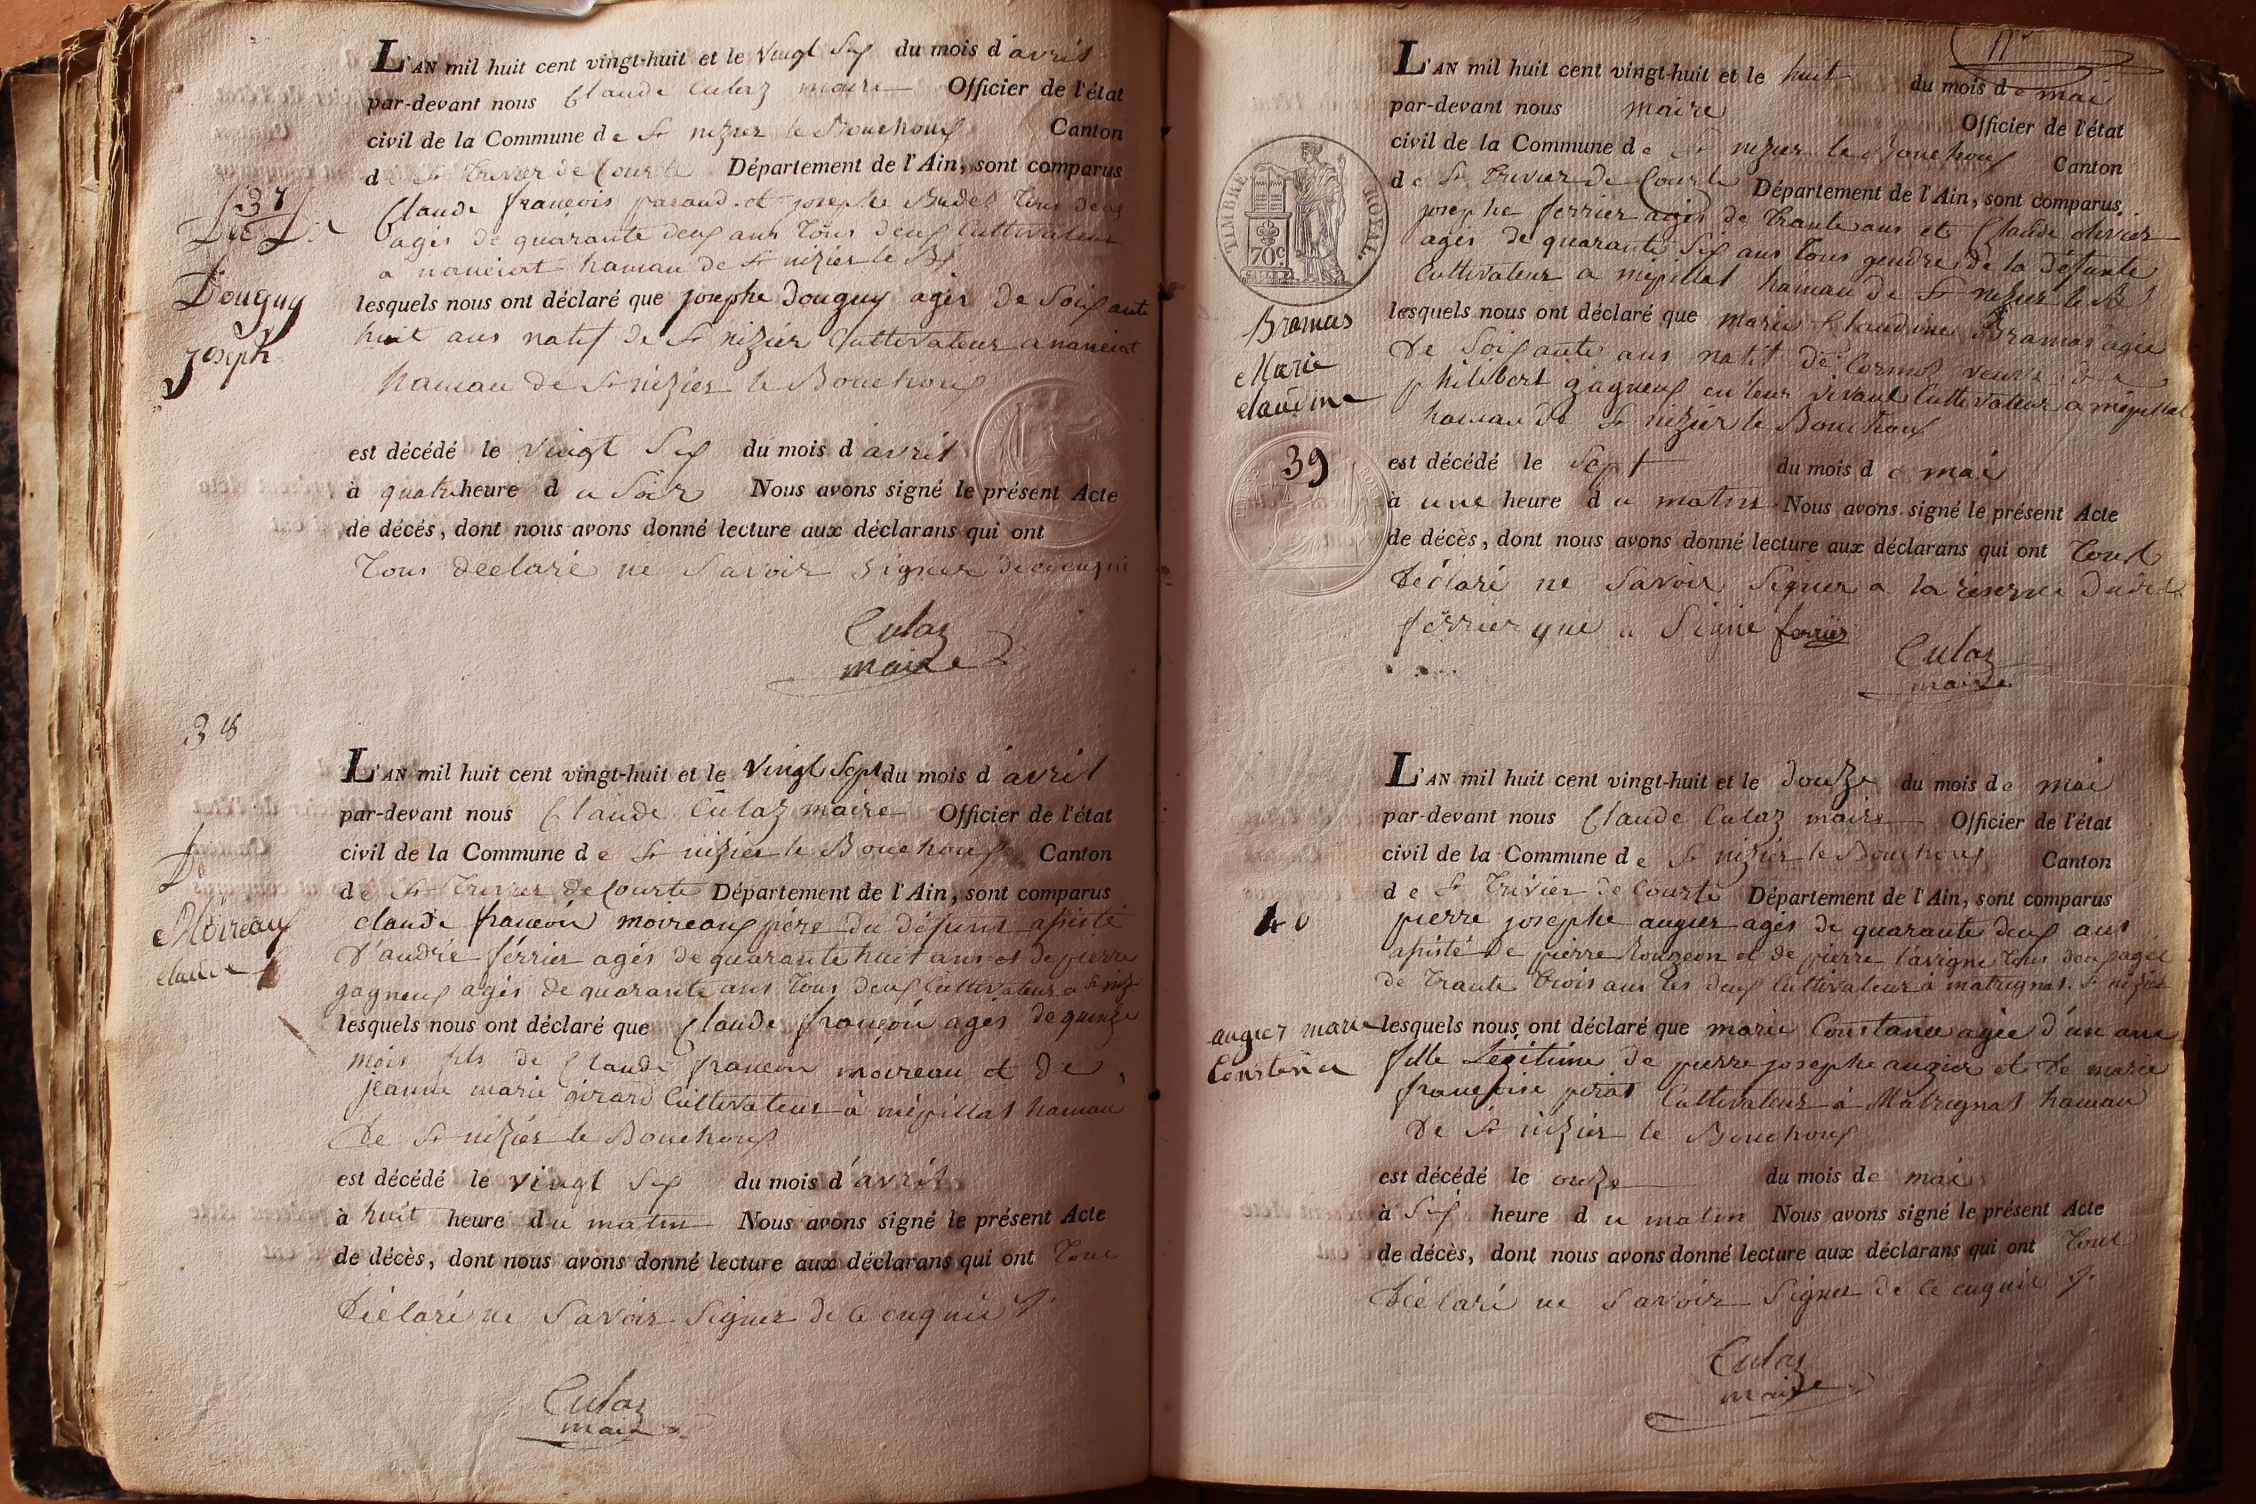 L'AN mil huit cent vingt-huit et le vingt six du mois d'avril
par-devant nous Claude Culaz maire Officier de l'état
civil de la Commune de St nizier le Bouchoux Canton
de St Trivier de Courte Département de l'Ain, sont comparus
37
Claude françois et josephe Budel Tous deux
agés de quarante deux ans Tous deux Cultivateur
a hamau de St nizier le Bx
Douguy
Joseph
lesquels nous ont déclaré que josephe Douguy agés de Soixante
huit ans natif de St nizier Cultivateur a
hamau de St nizier le Bouchoux
est décédé le vingt Six du mois d'avril
à quatre heure du Soir Nous avons signé le présent Acte
de décés, dont nous avons donné lecture aux déclarans qui ont
Tous declaré ne Savoir Signer de ce enquis
Culaz
maire
38
L'AN mil huit cent vingt-huit et le vingt Sept du mois d'avril
par-devant nous Claude Culaz maire Officier de l'état
civil de la Commune de St nizier le Bouchoux Canton
de St Trivier de Courte Département de l'Ain, sont comparus
D
Moireaux
claude f
claude françoi moireaux pére du défunt asisté
D'andré férrier agés de quarante huit ans et de pierre
gagneux agés de quarante ans Tous deux Cultivateur a St niz
lesquels nous ont déclaré que Claude françoi agés de quinze
mois fils de Claude francoi moireau et de
jeanne marie girard Cultivateur à mépillat hamau
De St nizier le Bouchoux
est décédé le vingt Six du mois d'avril
à huit heure du matin Nous avons signé le présent Acte
de décès, dont nous avons donné lecture aux déclarans qui ont Tous
Déclaré ne Savoir Signer de ce enquie
Culaz
maire
11
L'AN mil huit cent vingt-huit et le huit du mois de mai
par-devant nous maire Officier de l'état
civil de la Commune de St nizier le Bouchoux Canton
de St Trivier de Courte Département de l'Ain, sont comparus
TIMBRE ROYAL
70c.
josephe ferrier agés de Trante ans et Claude olivier
agés de quarante Six ans Tous gendre de la défunte
Cultivateur a mépillat hamau de St nizier le Bx
Bramas
Marie
claudine
lesquels nous ont déclaré que marie Claudine Bramas agée
De Soixante ans natif de Cormoz veuve de
philibert gagneux en leur vivant Cultivateur a mépillat
hamau de St nizier le Bouchoux
39
est décédé le Sept du mois de mai
à une heure du matin Nous avons signé le présent Acte
de décès, dont nous avons donné lecture aux déclarans qui ont Tous
Déclaré ne Savoir Signer a la réserve Dudit
ferrier que a Signé ferrier
Culaz
maire
L'AN mil huit cent vingt-huit et le douze du mois de mai
par-devant nous Claude Culaz maire Officier de l'état
civil de la Commune de St nizier le Bouchoux Canton
de St Trivier de Courte Département de l'Ain, sont comparus
40
pierre josephe augier agés de quarante deux ans
asisté De pierre Rougeon et de pierre lavigne Tous deux agés
de Trante Trois ans les deux Cultivateur à matrignat St nizier
augier marie
Constance
lesquels nous ont déclaré que marie Constance agée d'un ans
fille Légitime de pierre josephe augier et de marie
françoise pirat Cultivateur à Matrignat hamau
De St nizier le Bouchoux
est décédé le onze du mois de mai
à Six heure du matin Nous avons signé le présent Acte
de décès, dont nous avons donné lecture aux déclarans qui ont Tous
Déclaré ne Savoir Signer de ce enquie
Culaz
maire